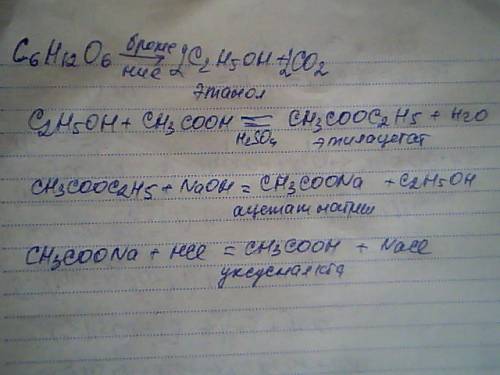 C6H12O6 броже ние → 2C2H5OH + 2CO2
этанол
C2H5OH + CH3COOH ⇌ CH3COOC2H5 + H2O
H2SO4 этилацетат
CH3COOC2H5 + NaOH = CH3COONa + C2H5OH
ацетат натрия
CH3COONa + HCl = CH3COOH + NaCl
уксусная к-та